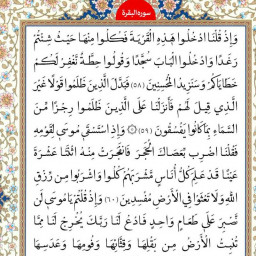 سوره البقرة
وَإِذْ قُلْنَا ادْخُلُوا هَذِهِ الْقَرْيَةَ فَكُلُوا مِنْهَا حَيْثُ شِئْتُمْ
رَغَدًا وَادْخُلُوا الْبَابَ سُجَّدًا وَقُولُوا حِطَّةٌ نَغْفِرْ لَكُمْ
خَطَايَاكُمْ وَسَنَزِيدُ الْمُحْسِنِينَ (٥٨) فَبَدَّلَ الَّذِينَ ظَلَمُوا قَوْلًا غَيْرَ
الَّذِي قِيلَ لَهُمْ فَأَنْزَلْنَا عَلَى الَّذِينَ ظَلَمُوا رِجْزًا مِنَ
السَّمَاءِ بِمَا كَانُوا يَفْسُقُونَ (٥٩) وَإِذِ اسْتَسْقَى مُوسَى لِقَوْمِهِ
فَقُلْنَا اضْرِبْ بِعَصَاكَ الْحَجَرَ فَانْفَجَرَتْ مِنْهُ اثْنَتَا عَشْرَةَ
عَيْنًا قَدْ عَلِمَ كُلُّ أُنَاسٍ مَشْرَبَهُمْ كُلُوا وَاشْرَبُوا مِنْ رِزْقِ
اللَّهِ وَلَا تَعْثَوْا فِي الْأَرْضِ مُفْسِدِينَ (٦٠) وَإِذْ قُلْتُمْ يَا مُوسَى لَنْ
نَصْبِرَ عَلَى طَعَامٍ وَاحِدٍ فَادْعُ لَنَا رَبَّكَ يُخْرِجْ لَنَا مِمَّا
تُنْبِتُ الْأَرْضُ مِنْ بَقْلِهَا وَقِثَّائِهَا وَفُومِهَا وَعَدَسِهَا